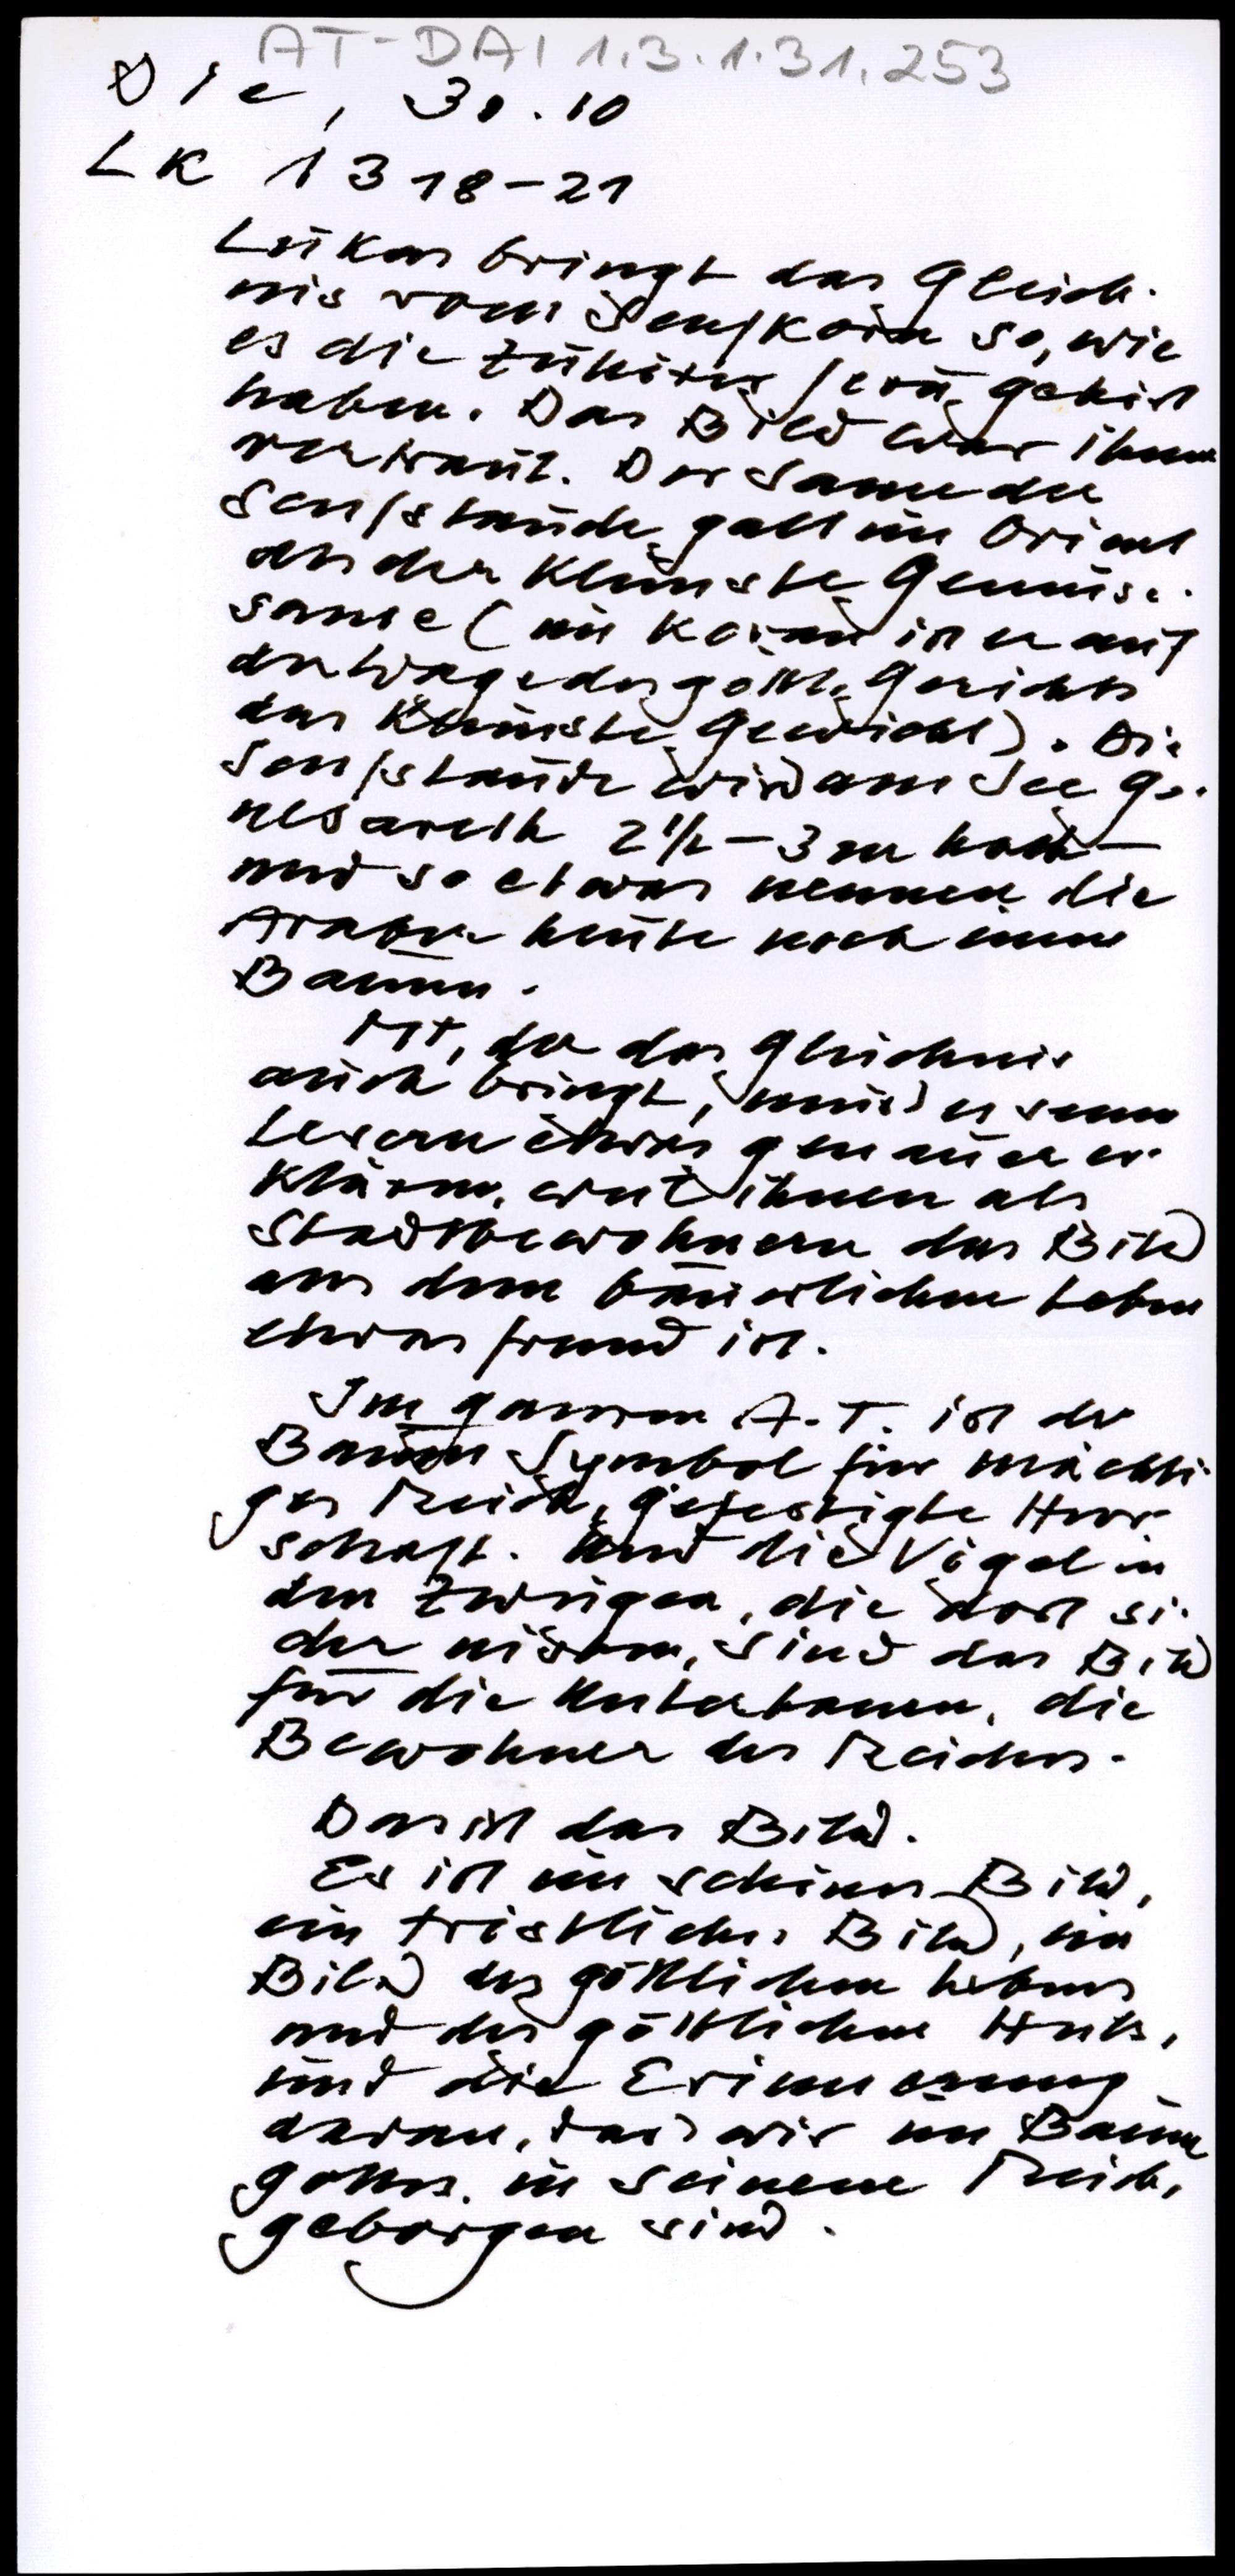 AT-DAI 1.3.1.31.253
Die, 30.10
LK 13 18-21
Lukas bringt das Gleich-
nis vom Senfkorn so, wie
es die Zuhörer Jesu gehört
haben. Das Bild war ihnen
vertraut. Der Same der
Senfstaude galt im Orient
als der kleinste Gemüse-
same (im Koran ist er auf
der Waage des göttl. Gerichts
das kleinste Gewicht). Die
Senfstaude wird am See Ge-
nesareth 2 1/2 - 3 m hoch -
und so etwas nennen die
Araber heute noch einen
Baum.
Mt, der das Gleichnis
auch bringt, muß es seinen
Lesern etwas genauer er-
klären, weil ihnen als
Stadtbewohnern das Bild
aus dem bäuerlichen Leben
etwas fremd ist.
Im ganzen A.T. ist der
Baum Symbol für mächti-
ges Reich, gefestigte Herr-
schaft. Und die Vögel in
den Zweigen, die dort si-
cher nisten, sind das Bild
für die Untertanen, die
Bewohner des Reiches.
Das ist das Bild.
Es ist ein schönes Bild,
ein tröstliches Bild, ein
Bild des göttlichen Lebens
und des göttlichen
und die Erinnerung
daran, daß wir im Baum
Gottes, in seinem Reich,
geborgen sind.